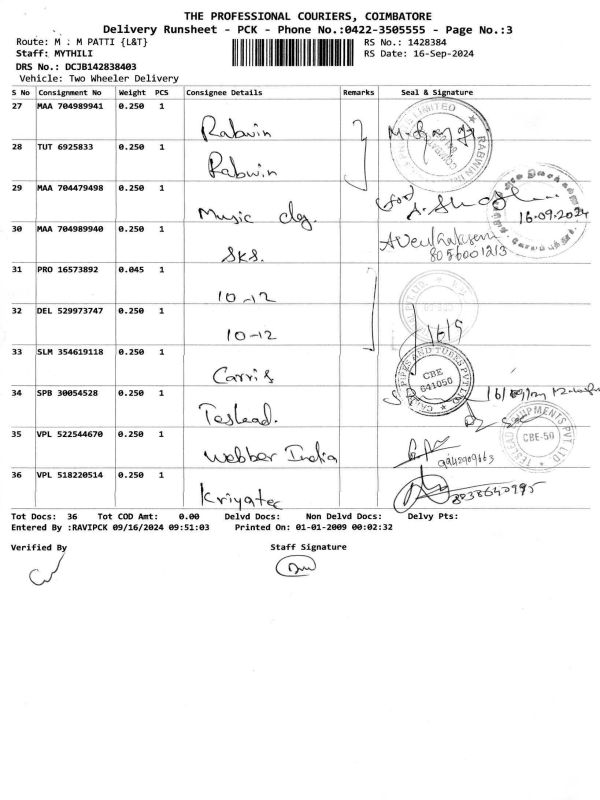 THE PROFESSIONAL COURIERS, COIMBATORE
Delivery Runsheet - PCK - Phone No.:0422-3505555 - Page No.:3
Route: M : M PATTI {L&T} RS No.: 1428384
Staff: MYTHILI RS Date: 16-Sep-2024
DRS No.: DCJB142838403
Vehicle: Two Wheeler Delivery
S No Consignment No Weight PCS Consignee Details Remarks Seal & Signature
27 MAA 704989941 0.250 1 Rabwin
28 TUT 6925833 0.250 1 Rabwin
29 MAA 704479498 0.250 1 Music clg. 16.09.2024
30 MAA 704989940 0.250 1 SKS. 8056001213
31 PRO 16573892 0.045 1 10-12
32 DEL 529973747 0.250 1 10-12 16/9
33 SLM 354619118 0.250 1 Carris PIPES AND TUBES PVT LTD CBE 641050
34 SPB 30054528 0.250 1 Teslead. TESLEAD EQUIPMENTS PVT. LTD CBE-50
35 VPL 522544670 0.250 1 Webber India
36 VPL 518220514 0.250 1 Kriyatec
Tot Docs: 36 Tot COD Amt: 0.00 Delvd Docs: Non Delvd Docs: Delvy Pts:
Entered By :RAVIPCK 09/16/2024 09:51:03 Printed On: 01-01-2009 00:02:32
Verified By Staff Signature